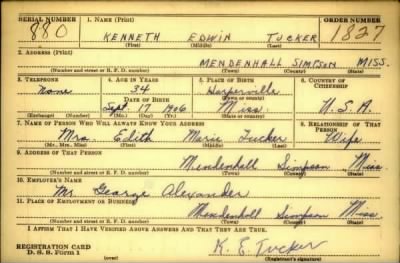 SERIAL NUMBER 1. NAME (Print) ORDER NUMBER
880 KENNETH EDWIN TUCKER 1827
(First) (Middle) (Last)
2. ADDRESS (Print)
MENDENHALL SIMPSON MISS.
(Number and street or R. F. D. number) (Town) (County) (State)
3. TELEPHONE 4. AGE IN YEARS 5. PLACE OF BIRTH 6. COUNTRY OF CITIZENSHIP
None 34 Harperville U.S.A.
DATE OF BIRTH (Town or county)
Sept 17 1906 Miss.
(Exchange) (Number) (Mo.) (Day) (Yr.) (State or country)
7. NAME OF PERSON WHO WILL ALWAYS KNOW YOUR ADDRESS 8. RELATIONSHIP OF THAT PERSON
Mrs. Edith Marie Tucker Wife
(Mr., Mrs., Miss) (First) (Middle) (Last)
9. ADDRESS OF THAT PERSON
Mendenhall Simpson Miss.
(Number and street or R. F. D. number) (Town) (County) (State)
10. EMPLOYER'S NAME
Mr. George Alexander
11. PLACE OF EMPLOYMENT OR BUSINESS
Mendenhall Simpson Miss.
(Number and street or R. F. D. number) (Town) (County) (State)
I AFFIRM THAT I HAVE VERIFIED ABOVE ANSWERS AND THAT THEY ARE TRUE.
REGISTRATION CARD
D. S. S. Form 1 K. E. Tucker
(Registrant's signature)